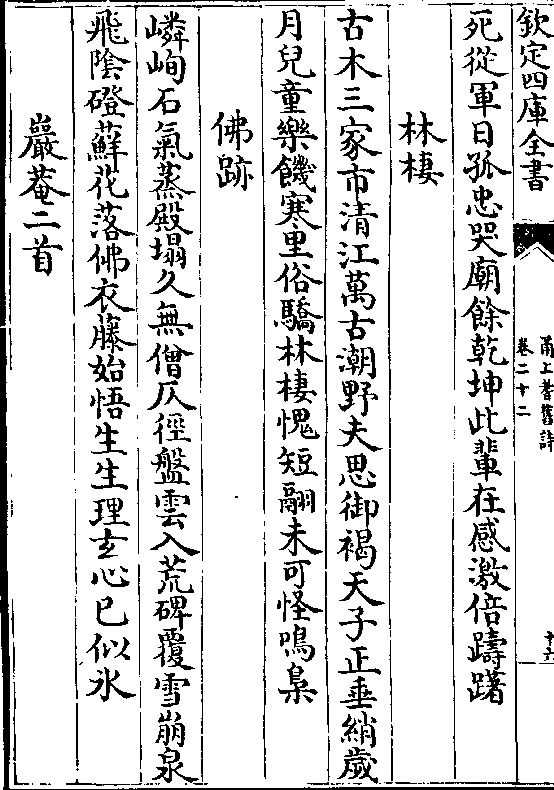 欽定四庫全書
甬上耆舊詩
卷二十二
十六
死從軍日孤忠哭廟餘乾坤此輩在感激倍躊躇
林棲
古木三家市清江萬古潮野夫思御褐天子正垂綃歲
月兒童樂饑寒里俗驕林棲愧短翮未可怪鳴梟
佛跡
嶙峋石氣蒸殿塌久無僧仄徑盤雲入荒碑覆雪崩泉
飛陰磴蘚花落佛衣藤始悟生生理玄心已似氷
巖菴二首